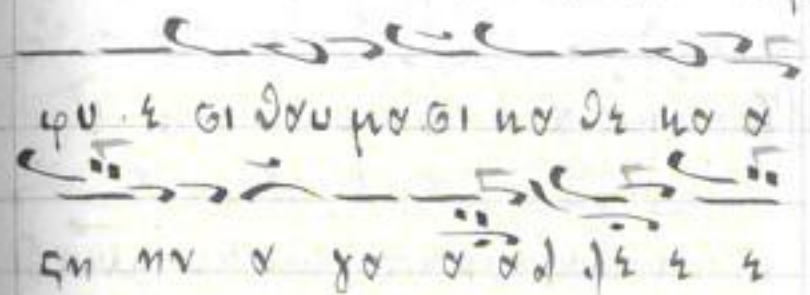 φυ ε σι θαυ μα σι κα θε κα α
ϛη ην α γα α αλ λε ε ε